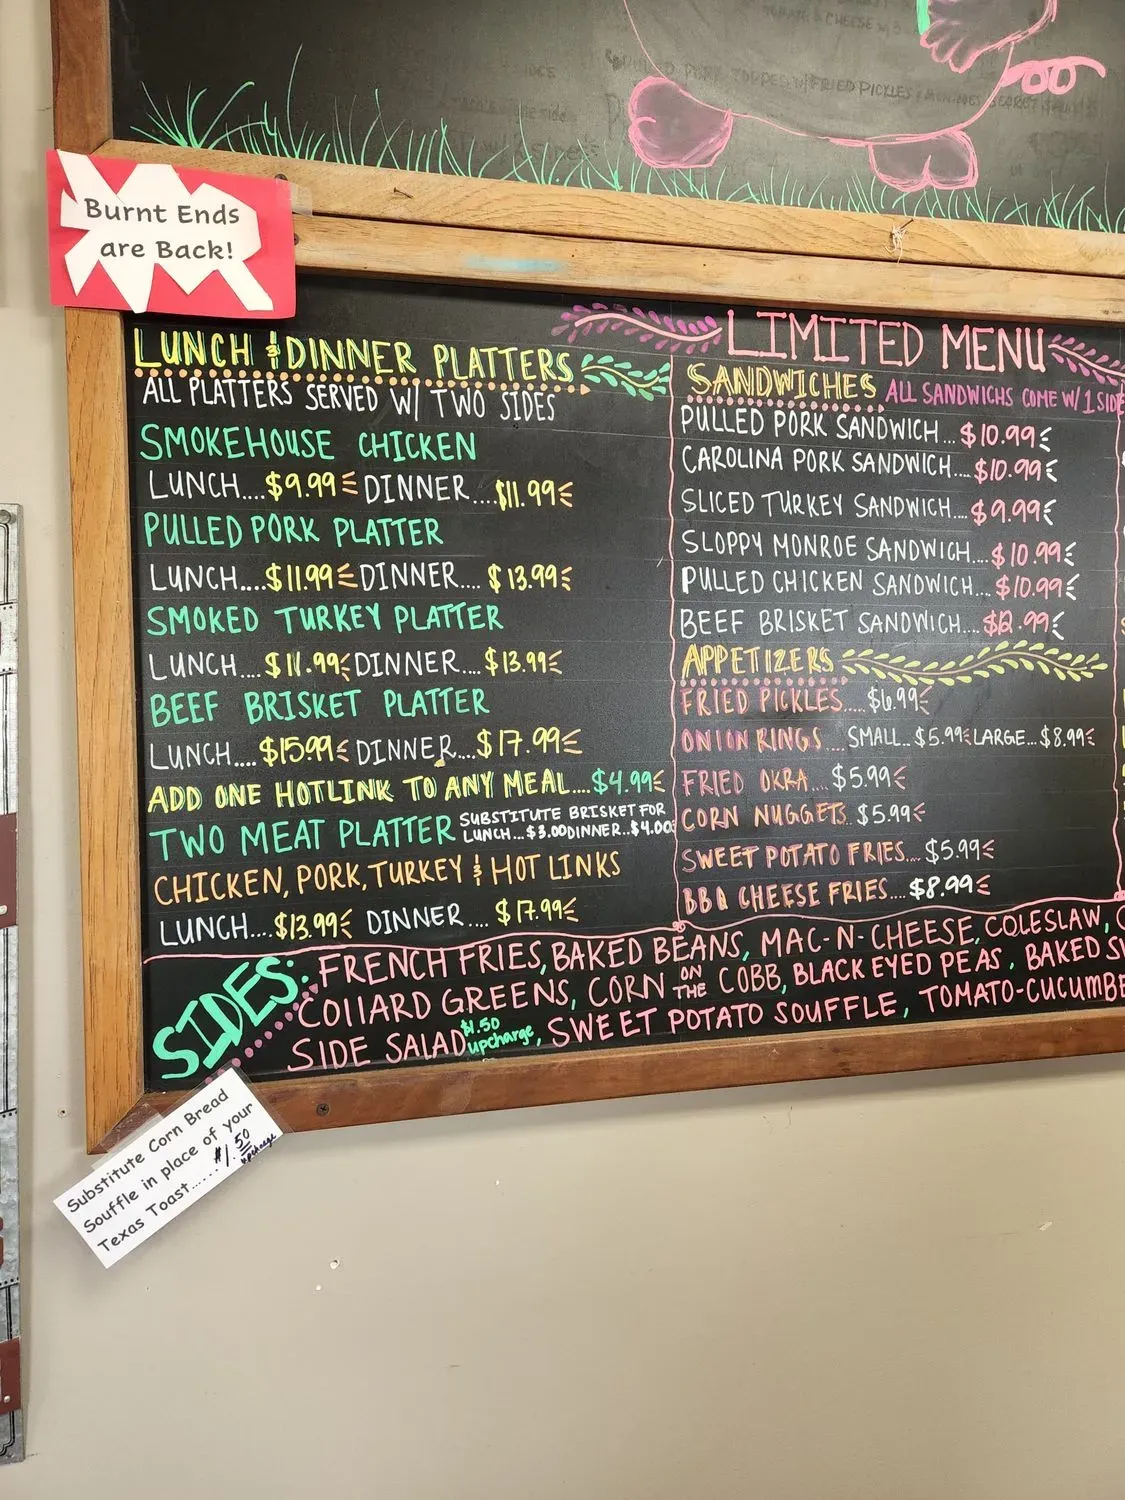 Burnt Ends
are Back!
LUNCH & DINNER PLATTERS
ALL PLATTERS SERVED W/ TWO SIDES
SMOKEHOUSE CHICKEN
LUNCH....$9.99 DINNER....$11.99
PULLED PORK PLATTER
LUNCH.....$11.99 DINNER.... $13.99
SMOKED TURKEY PLATTER
LUNCH.... $11.99 DINNER....$13.99
BEEF BRISKET PLATTER
LUNCH.... $15.99 DINNER....$17.99
ADD ONE HOTLINK TO ANY MEAL....$4.99
TWO MEAT PLATTER SUBSTITUTE BRISKET FOR
LUNCH...$3.00 DINNER..$4.00
CHICKEN, PORK, TURKEY & HOT LINKS
LUNCH....$13.99 DINNER.... $17.99
LIMITED MENU
SANDWICHES ALL SANDWICHS COME W/ 1 SIDE
PULLED PORK SANDWICH...$10.99
CAROLINA PORK SANDWICH....$10.99
SLICED TURKEY SANDWICH....$9.99
SLOPPY MONROE SANDWICH....$10.99
PULLED CHICKEN SANDWICH....$10.99
BEEF BRISKET SANDWICH.... .99
APPETIZERS
FRIED PICKLES.....$6.99
ONION RINGS.... SMALL..$5.99 LARGE...$8.99
FRIED OKRA...$5.99
CORN NUGGETS..$5.99
SWEET POTATO FRIES....$5.99
BBQ CHEESE FRIES....$8.99
SIDES: FRENCH FRIES, BAKED BEANS, MAC-N-CHEESE, COLESLAW,
COllARD GREENS, CORN ON THE COBB, BLACK EYED PEAS, BAKED
SIDE SALAD $1.50 upcharge, SWEET POTATO SOUFFLE, TOMATO-CUCUMBE
Substitute Corn Bread
Souffle in place of your
Texas Toast...... $1.50 upcharge